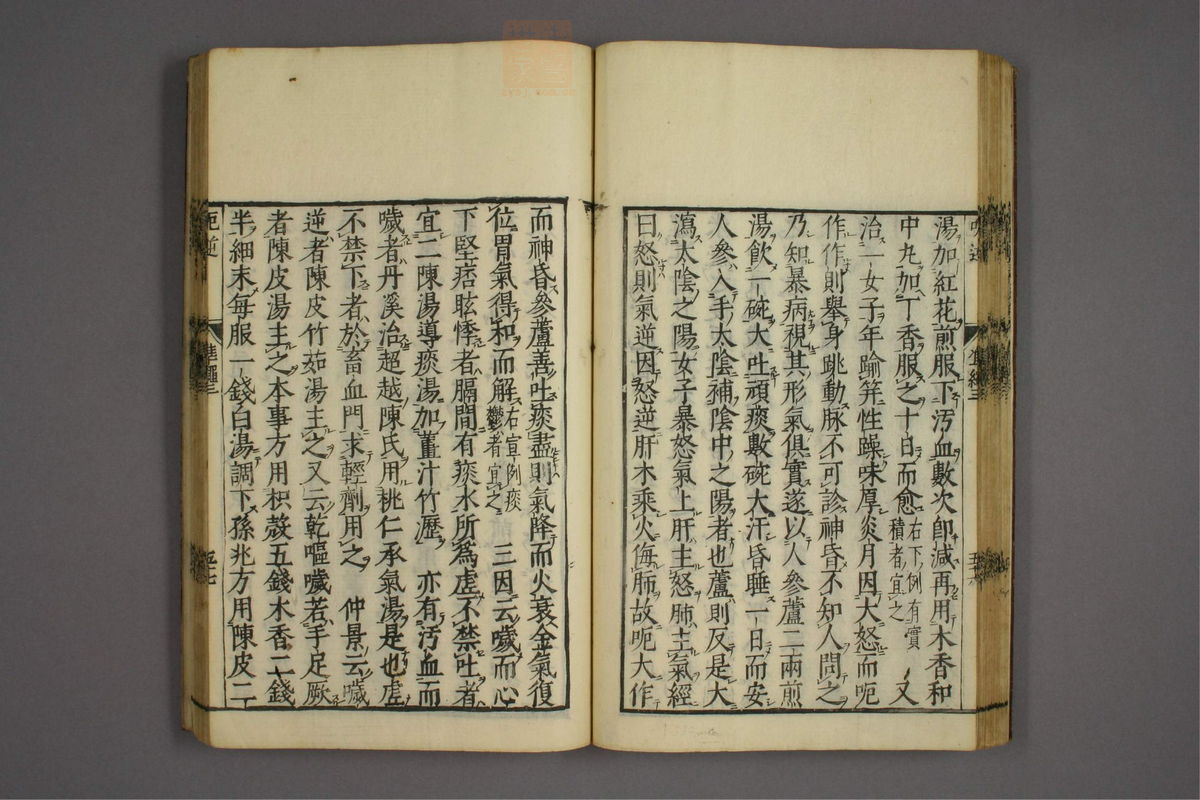 湯加紅花煎服下汚血數次卽減再用木香和
中丸加丁香服之十日而愈右下例有實積者宜之又
治一女子年踰筓性躁味厚炎月因大怒而呃
作作則舉身跳動脉不可診神昏不知人問之
乃知暴病視其形氣俱實遂以人參蘆二兩煎
湯飲一碗大吐頑痰數碗大汗昏睡一日而安
人參入手太陰補陰中之陽者也蘆則反是大
瀉太陰之陽女子暴怒氣上肝主怒肺主氣經
曰怒則氣逆因怒逆肝木乘火侮肺故呃大作
而神昏參蘆善吐痰盡則氣降而火衰金氣復
位胃氣得和而解右宣例痰鬱者宜之三因云噦而心
下堅痞眩悸者膈間有痰水所爲虛不禁吐者
宜二陳湯導痰湯加薑汁竹瀝 亦有汚血而
噦者丹溪治超越陳氏用桃仁承氣湯是也虛
不禁下者於畜血門求輕劑用之 仲景云噦
逆者陳皮竹茹湯主之又云乾嘔噦若手足厥
者陳皮湯主之本事方用枳殼五錢木香二錢
半細末每服一錢白湯調下孫兆方用陳皮二
呃逆
五七